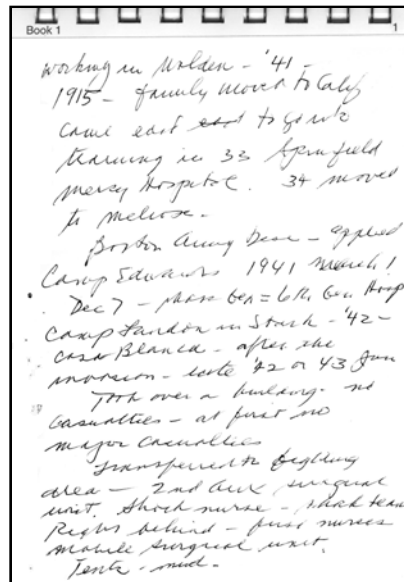 Book 1 1
working in Malden - '41 -
1915 - family moved to Calif
came east to go into
training in 33 Springfield
Mercy Hospital. 34 moved
to Melrose.
Boston Army Base - applied
Camp Edwards 1941 March 1
Dec 7 - phone Gen = 6th Gen Hosp
Camp in - '42 -
Casa Blanca - after the
invasion - late '42 or 43 Jan
Took over a building - no
casualties - at first no
major casualties
Transferred to fighting
area - 2nd Aux surgical
unit. Shock nurse - shock team
Right behind - first nurses
mobile surgical unit.
Tents - mud -